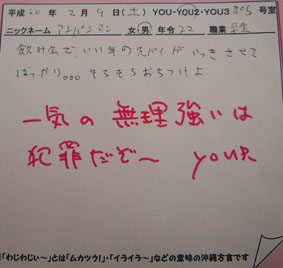 平成20年2月9日(土) YOU・YOU2・YOU3 805号室
ニックネーム アンパンマン 女・男 年令22 職業 学生
飲み会で、いい年の先パイが いっき させて
ばっかり。。。そろそろおちつけよ
一気の無理強いは
犯罪だぞ〜 you
「わじわじぃ〜」とは「ムカツク!」・「イライラ〜」などの意味の沖縄方言です